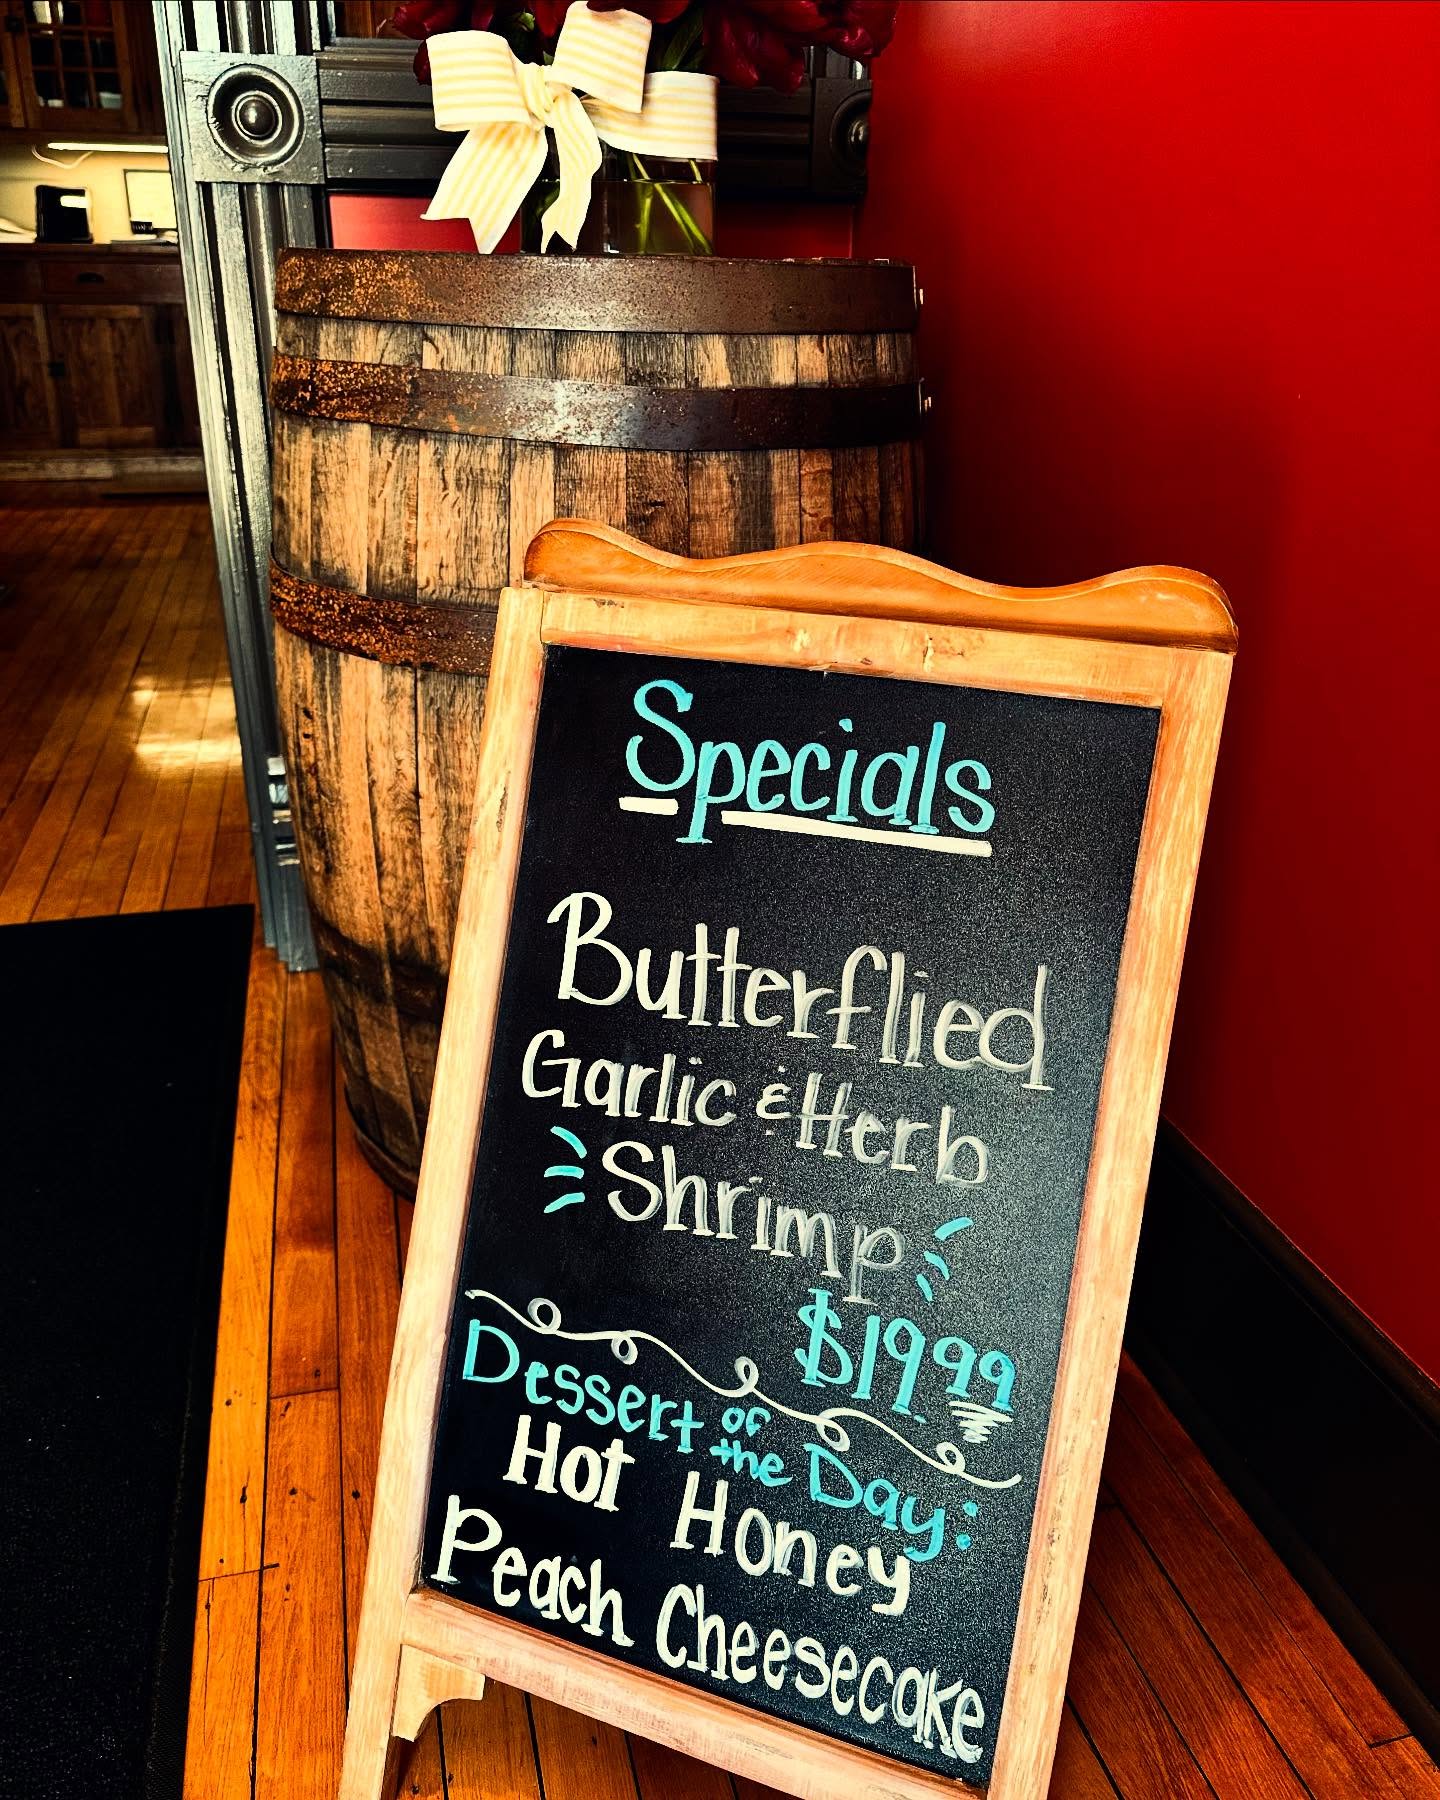 Specials
Butterflied
Garlic & Herb
Shrimp
$19.99
Dessert of the Day:
Hot Honey
Peach Cheesecake